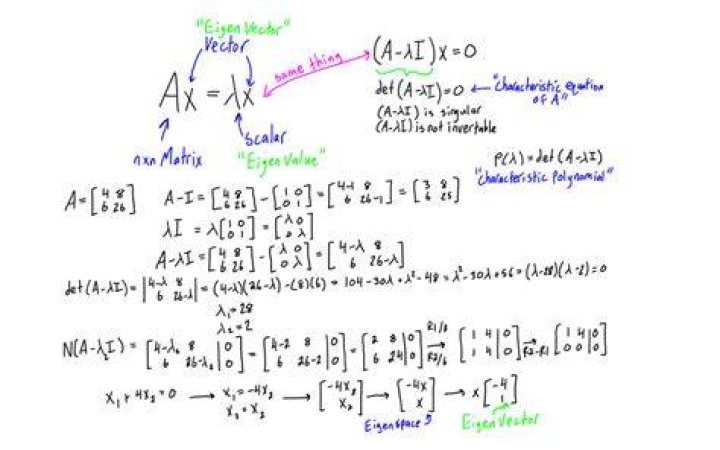 "Eigen Vector"
Vector
Ax = λx
same thing
(A-λI)x = 0
det(A-λI) = 0 ← "Characteristic equation of A"
(A-λI) is singular
(A-λI) is not invertable
nxn Matrix
scalar
"Eigen Value"
P(λ) = det(A-λI)
"Characteristic Polynomial"
A = [4 8; 6 26] A-I = [4 8; 6 26] - [1 0; 0 1] = [4-1 8; 6 26-1] = [3 8; 6 25]
λI = λ[1 0; 0 1] = [λ 0; 0 λ]
A-λI = [4 8; 6 26] - [λ 0; 0 λ] = [4-λ 8; 6 26-λ]
det(A-λI) = |4-λ 8; 6 26-λ| = (4-λ)(26-λ) - (8)(6) = 104 - 30λ + λ² - 48 = λ² - 30λ + 56 = (λ-28)(λ-2) = 0
λ₁ = 28
λ₂ = 2
N(A-λ₂I) = [4-λ₂ 8 | 0; 6 26-λ₂ | 0] = [4-2 8 | 0; 6 26-2 | 0] = [2 8 | 0; 6 24 | 0] R1/2 → R2/6 [1 4 | 0; 1 4 | 0] → R2-R1 [1 4 | 0; 0 0 | 0]
x₁ + 4x₂ = 0 → x₁ = -4x₂ x₂ = x₂ → [-4x₂; x₂] → [-4x; x] → x[-4; 1]
Eigenspace
Eigen Vector